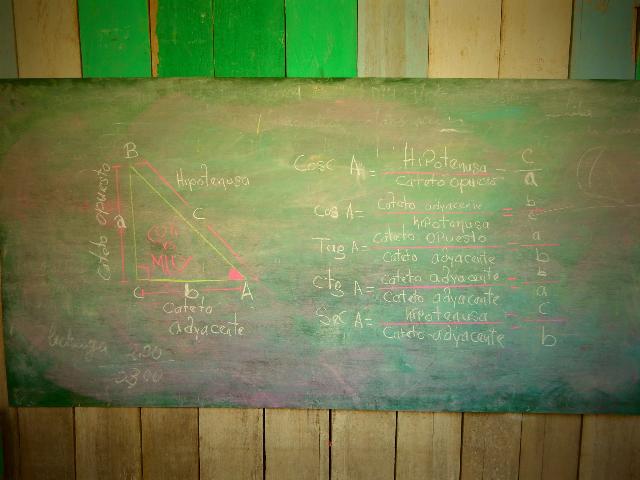 B
Hipotenusa
Cateto opuesto
a
c
C b A
Cateto
adyacente
Cosc A = Hipotenusa / Cateto opueso = c / a
Cos A = Cateto adyacente / hipotenusa = b / c
Tag A = Cateto opuesto / Cateto adyacente = a / b
ctg A = Cateto adyacente / Cateto adyacente = b / a
Sec A = hipotenusa / Cateto adyacente = c / b
lechuga